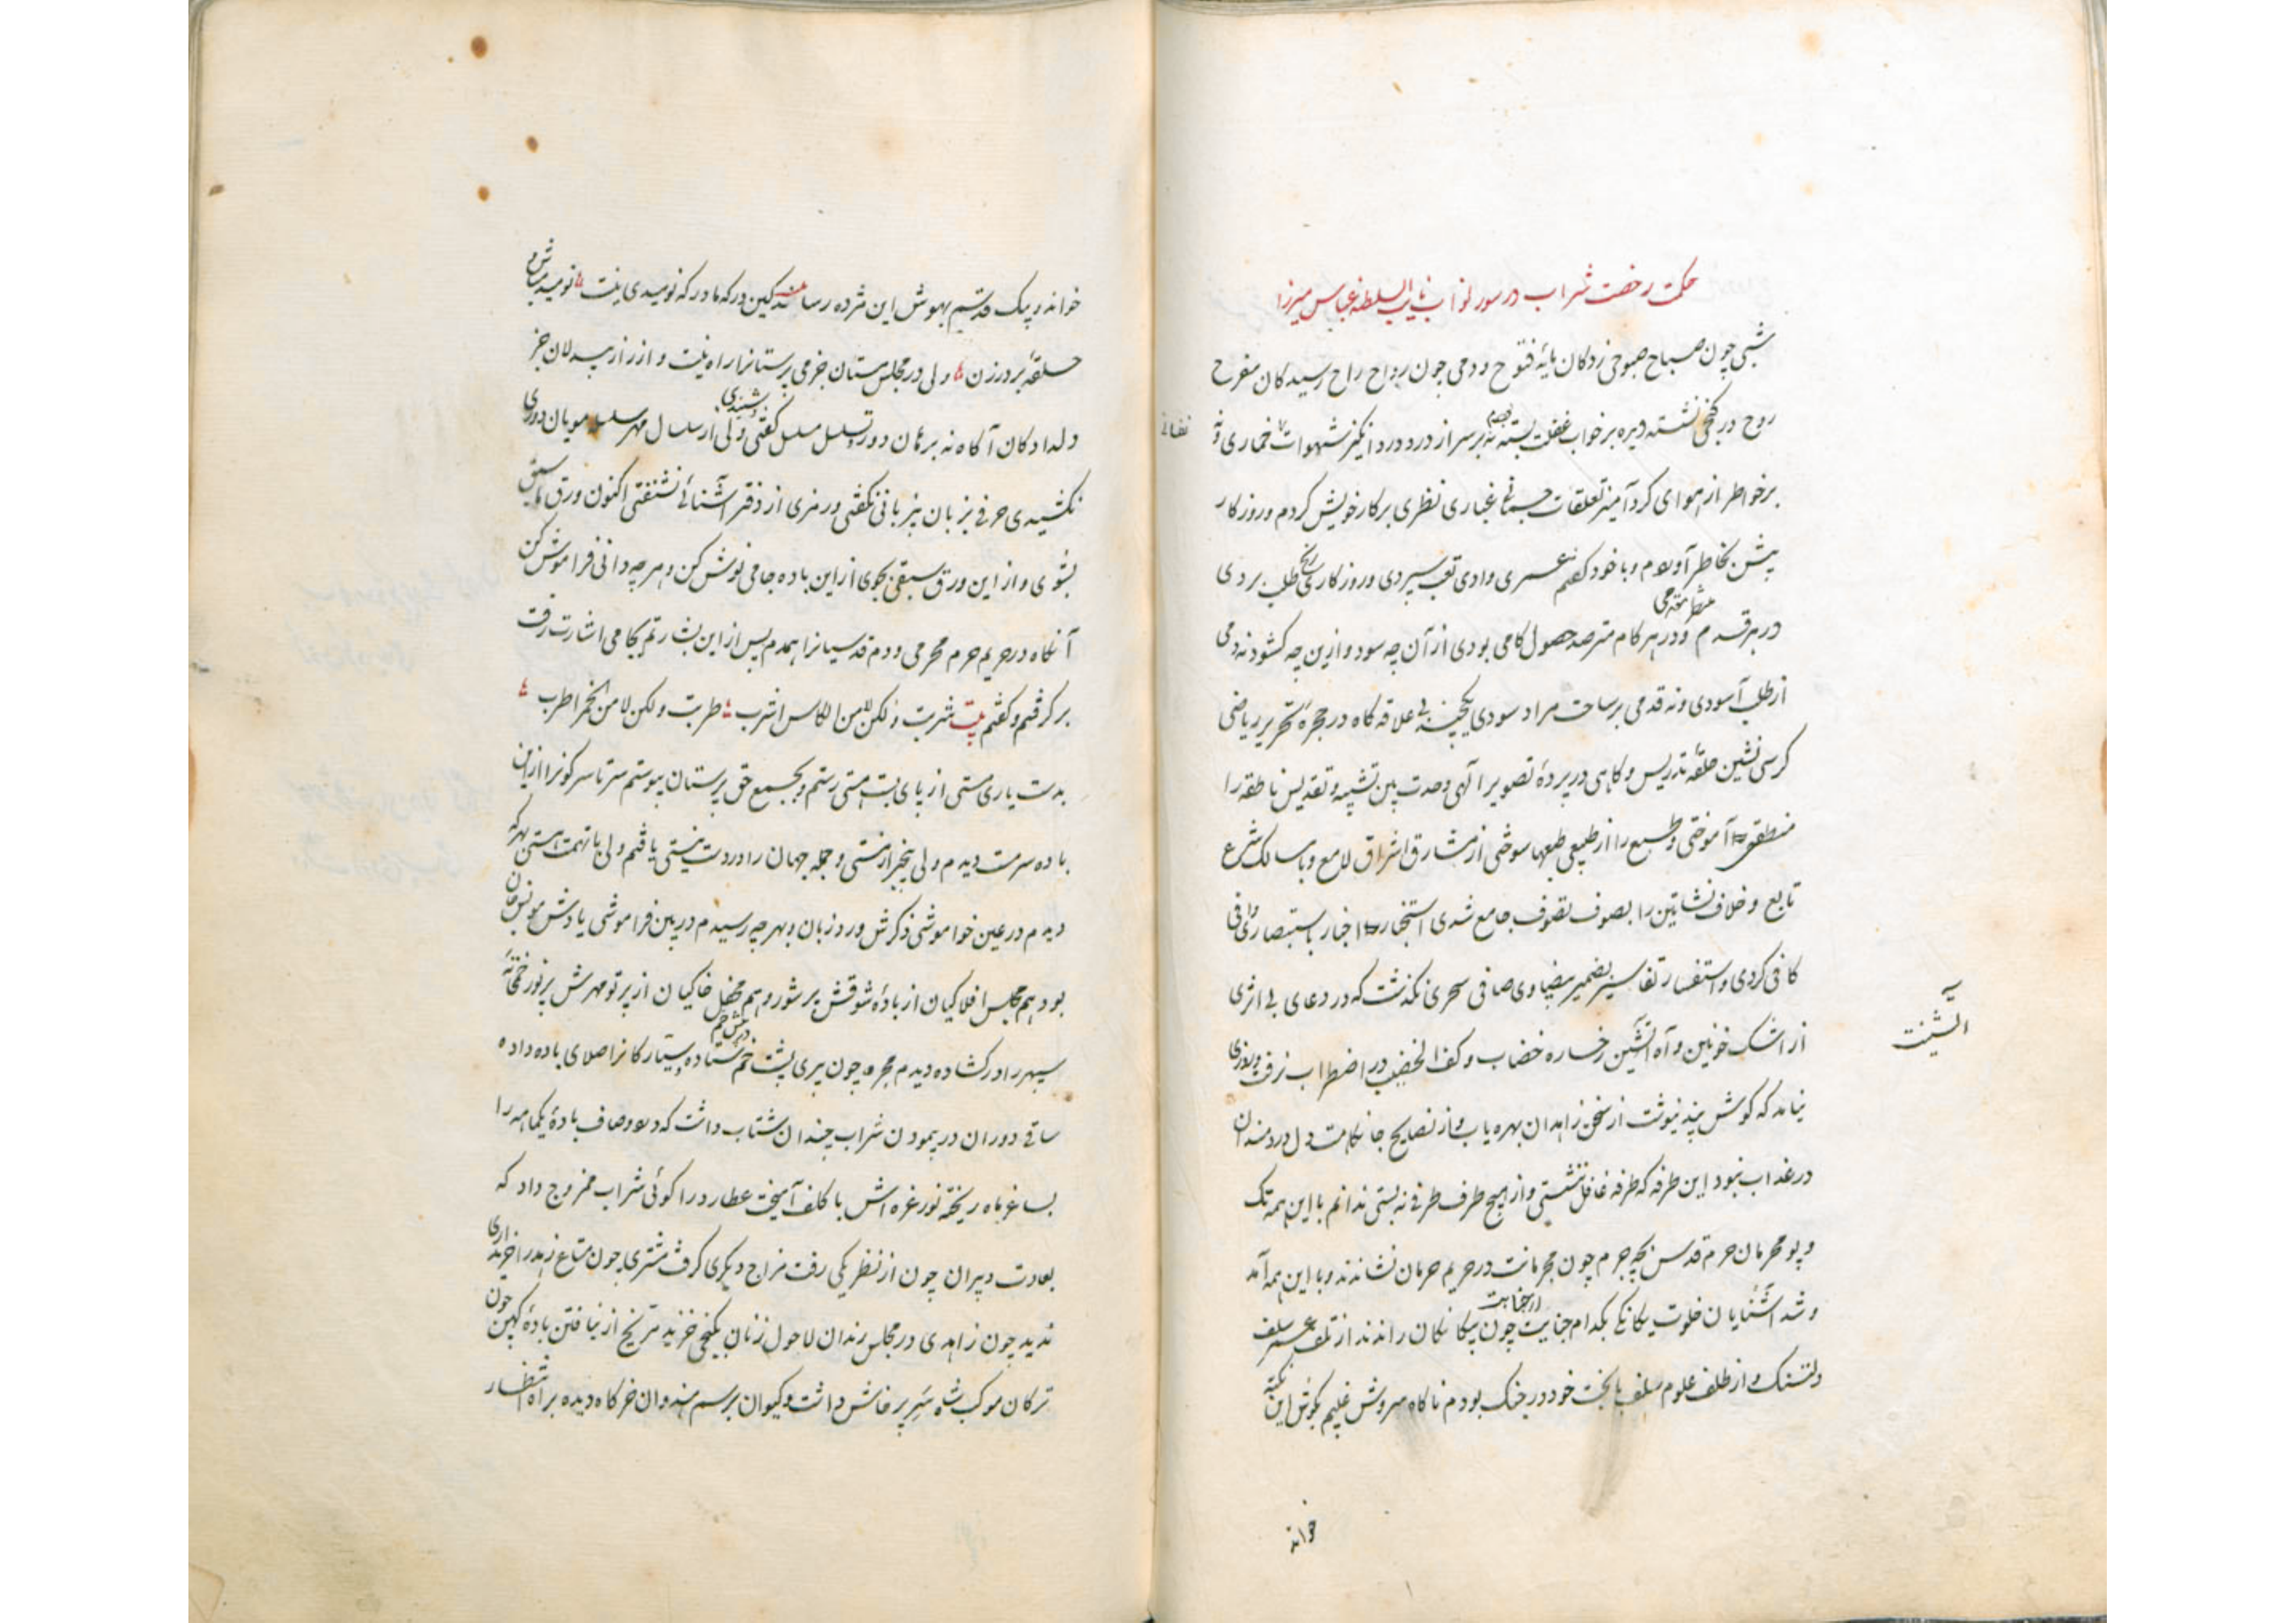 حکمت رخصت شراب در سور نواب نایب السلطنه عباس میرزا
شبی چون صباح صبوحی زدکان مایهٔ فتوح و دمی چون رواح راح رسیدکان مفرح
روح در کنجی نشسته دیده بر خواب غفلت بسته نه بر سر از درد درد انکیز شهوات خماری و نه
نفسانی
بر خواطر از هوای کرد آمیز تعلقات جسمانی غباری نظری بر کار خویش کردم و روزکار
پیشین بخاطر آوردم و با خود کفتم عمری وادی تعب سپردی و روزکاری رنج طلب بردی
در هر قدم منتظر مقدمی و در هر کام مترصد حصول کامی بودی از آن چه سود و ازین چه کشود نه دمی
از طلب آسودی و نه قدمی بر ساحت مراد سودی بی علاقه کاه در حجره تحریر ریاضی
کرسی نشین حلقهٔ تدریس و کاهی در پردهٔ تصویر الهی وحدت بین تشبیه و تقدیس ناطقه را
منطقی آموختی و طبع را از طبیعی سوختی از مشارق اشراق لامع و با مسالک شرع
تابع و خلاف نشاتین را بصوف تصوف جامع شدی استخبار اخبار باستبصار رای وافی
کافی کردی و استفسار تفاسیر بضمیر بیضاوی صافی سحری نکذشت که در دعای بی اثری
از اشک خونین و آه آتشین رخساره خضاب و کف الخضیب در اضطراب نرفت و روزی
آتشینت
نیامد که کوش پند نیوشت از سخن زاهدان بهره یاب و از نصایح جانکاهت دل دردمندان
در عذاب نبود این طرفه که طرفه غافل ننشستی و از هیچ طرف طرفی نه بستی ندانم با این همه تک
و پو محرمان حرم قدس بچه جرم چون مجرمانت در حریم حرمان نشاندند و با این همه آمد
و شد آشنایان خلوت یکانکی بکدام جنایت چون بیکانکان راندند از تلف عمر سلف
دلتنک و از طلف علوم سلف با بخت خود در جنک بودم ناکاه سروش غیبم بکوش این نکته
خواند
خواند و پیک قدسیم بهوش این مژده رساند کین درکه ما درکه نومیدی نیست نومید مباش و
حلقهٔ بر در زن ولی در مجلس مستان جز می پرستانرا راه نیست و از راز بیدلان جز
دلدادکان آکاه نه برهان دور و تسلسل مسلسل کفتی و شنیدی ولی از سلسال مهر سلسله مویان دوری
نکشیدی حرفی بزبان بیزبانی نکفتی و رمزی از دفتر آشنائی نشنفتی اکنون ورق ما سبق
بشوی و از این ورق سبقی بجوی از این باده جامی نوش کن و هر چه دانی فراموش کن
آنکاه در حریم حرم محرمی و دم قدسیانرا همدم پس از این بشارتم بجامی اشارت رفت
بر کرفتم و کفتم بیت شربت ولکن لا من الکاس اشرب طربت ولکن لا من الخمر اطرب
بدستیاری مستی از پای بست هستی رستم و بجمع حق پرستان پیوستم سرتاسر کونرا از این
باده سرمست دیدم ولی بیخبر از مستی و جمله جهان را در دست نیستی یافتم ولی با تهمت هستی بهر که
دیدم در عین خواموشی ذکرش ورد زبان و بهر چه رسیدم در بین فراموشی یادش مونس جان
بود هم مجلس افلاکیان از بادهٔ شوقش پر شور و هم محفل خاکیان از پرتو مهرش پر نور خمخانهٔ
سپهر را در کشاده دیدم مجره چون پیری پشت خم در پیش خم ستاده و ستارکانرا صلای باده داده
ساقی دوران در پیمودن شراب چندان شتاب داشت که درد و صاف بادهٔ یکماهه را
بساغر ماه ریخته نور غره اش با کلف آمیخت عطارد را کوئی شراب ممزوج داد که
بعادت دبیران چون از نظر یکی رفت مزاج دیکری کرفت مشتری چون متاع زهد را خریداری
ندید چون زاهدی در مجلس رندان لاحول زنان بکنجی خزید مریخ از نیافتن بادهٔ کهن چون
ترکان موکب شاه سر پر خاش داشت و کیوان برسم هندوان خرکاه دیده براه انتظار